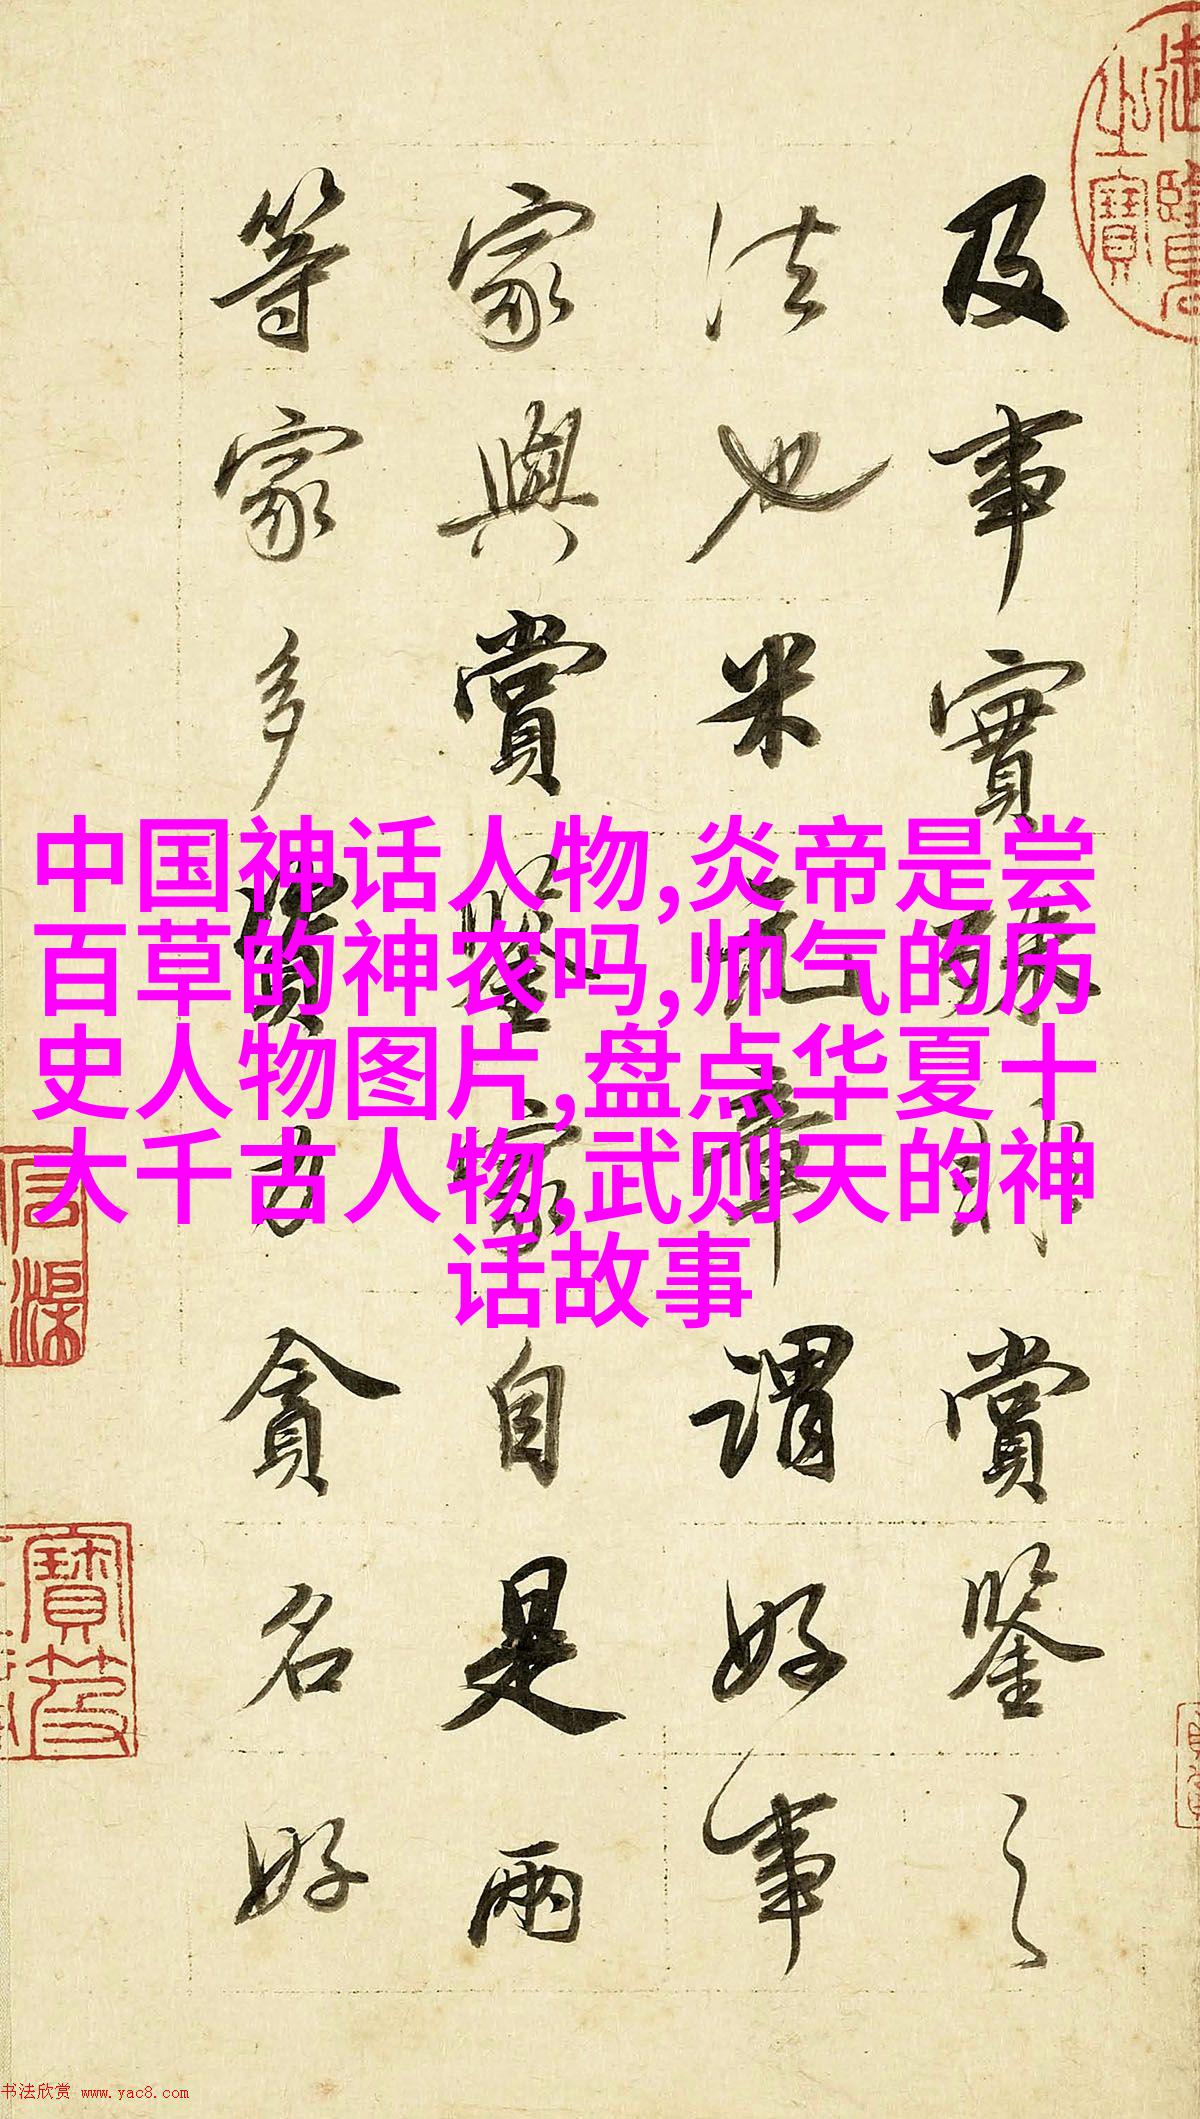 及事實殊非賞鑒之
法也米元章謂好事
家與賞鑒家自是兩
等家多資力貪名好
御覽
之寶
中国神话人物,炎帝是尝
百草的神农吗,帅气的历
史人物图片,盘点华夏十
大千古人物,武则天的神
话故事
寶笈
书法欣赏 www.yac8.com